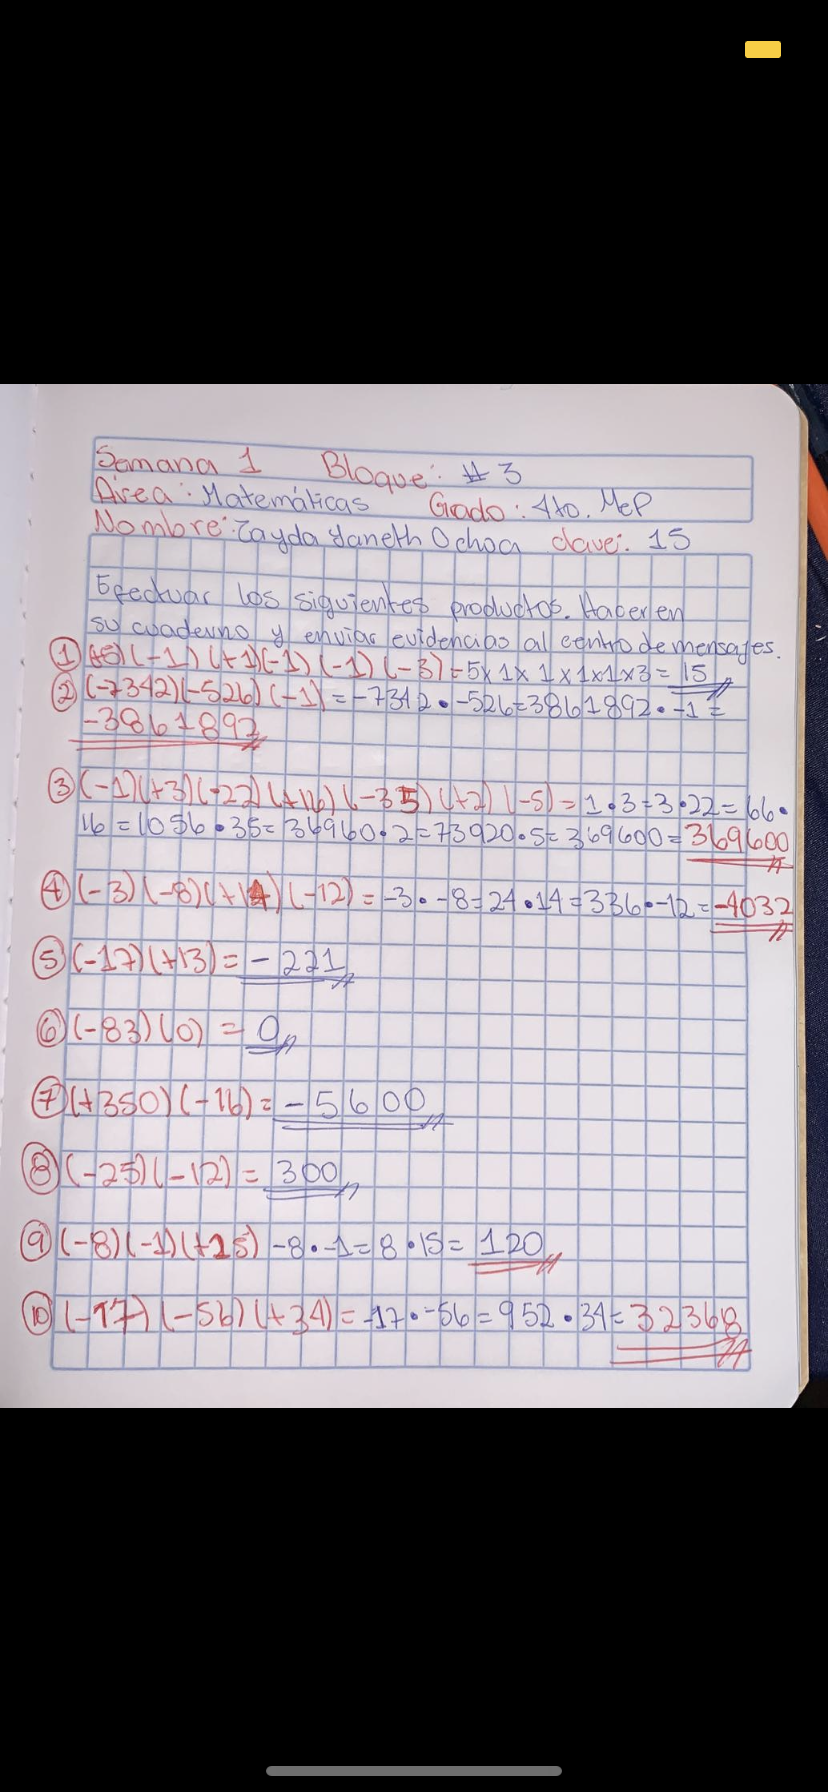 Semana 1 Bloque: #3
Área: Matemáticas Grado: 4to. MeP
Nombre: Zayda Yaneth Ochoa clave: 15
Efectuar los siguientes productos. Hacer en
su cuaderno y enviar evidencias al centro de mensajes.
① (+5)(-1)(+1)(-1)(-1)(-3)=5x1x1x1x1x3=15
② (-7342)(-526)(-1)=-7342·-526=3861892·-1=
-3861892
③ (-1)(+3)(-22)(+16)(-35)(+2)(-5)=1·3=3·22=66·
16=1056·35=36960·2=73920·5=369600=369600
④ (-3)(-8)(+14)(-12)=-3·-8=24·14=336·-12=-4032
⑤ (-17)(+13)=-221
⑥ (-83)(0)=0
⑦ (+350)(-16)=-5600
⑧ (-25)(-12)=300
⑨ (-8)(-1)(+15) -8·-1=8·15=120
⑩ (-17)(-56)(+34)=-17·-56=952·34=32368